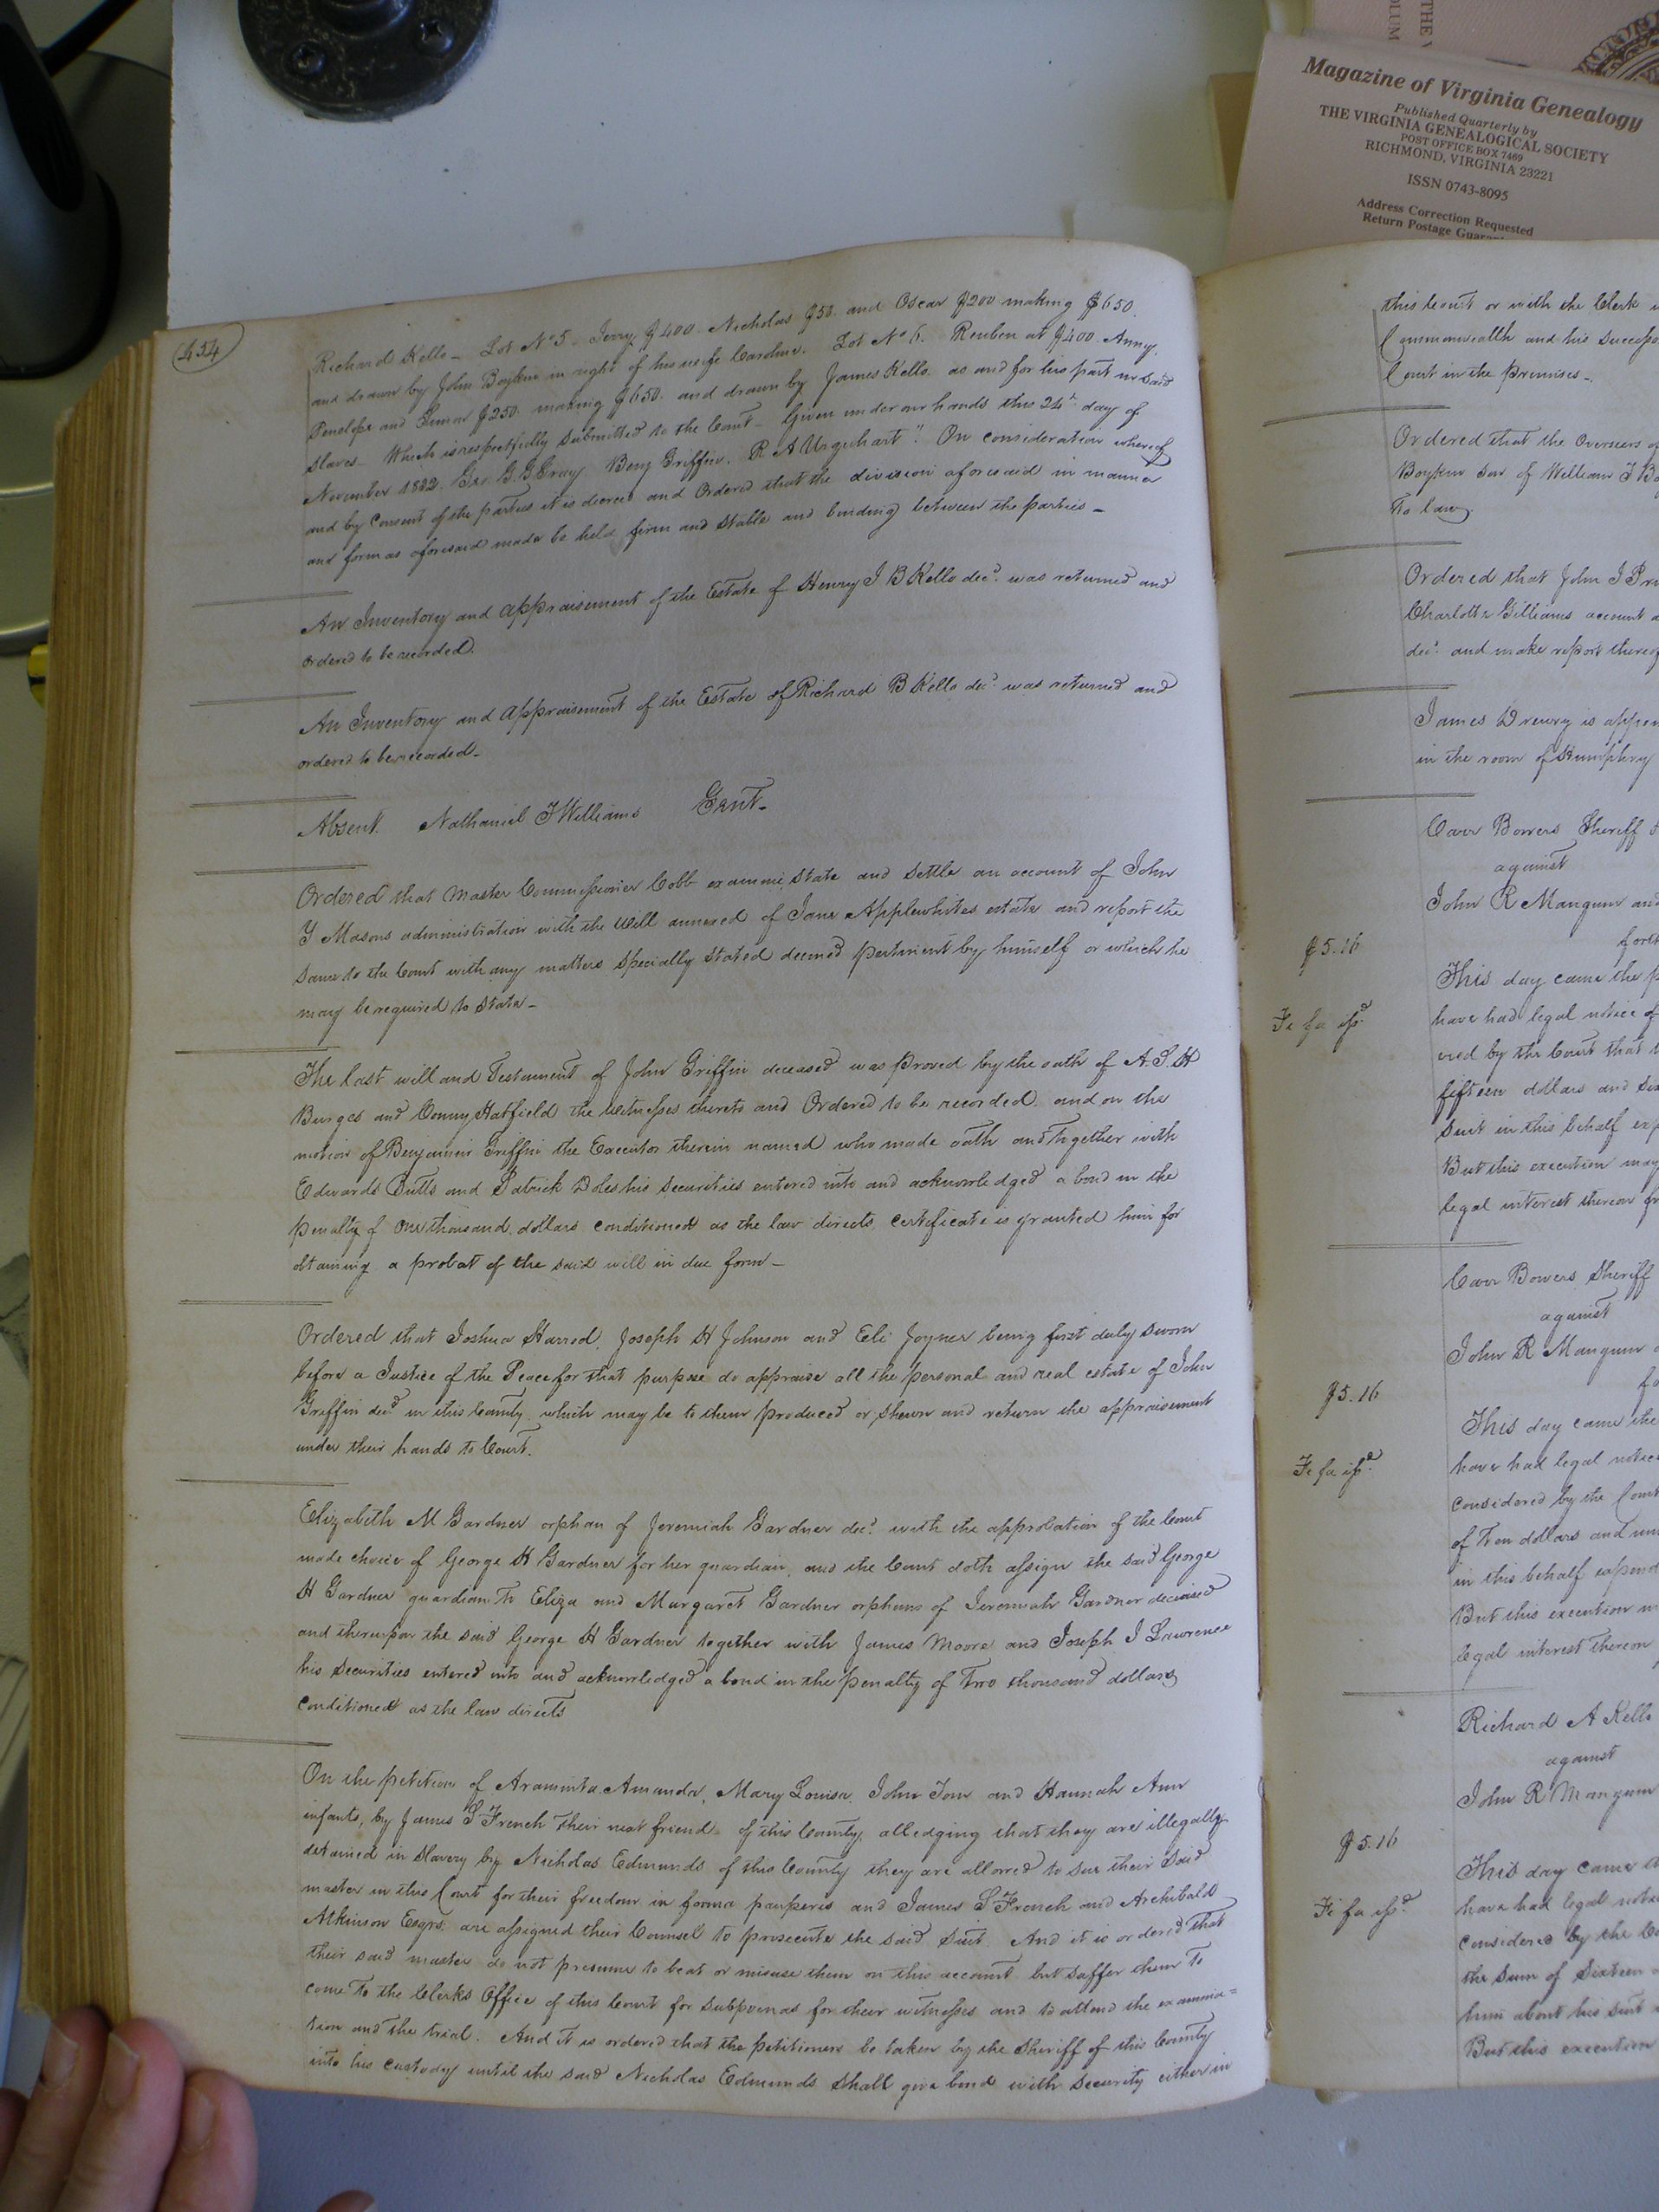 Magazine of Virginia Genealogy
Published Quarterly by
THE VIRGINIA GENEALOGICAL SOCIETY
POST OFFICE BOX 7469
RICHMOND, VIRGINIA 23221
ISSN 0743-8095
Address Correction Requested
Return Postage Guaran
THE V
OLUM
454
Richard Kello - Lot No 5 - Jerry $400 Nicholas $50. and Oscar $200 making $650.
and drawn by John Boykin in right of his wife Caroline. Lot No 6. Reuben at $400. Anny,
Penelope and $250. making $650. and drawn by James Kello as and for his part in said
slaves - Which is respectfully submitted to the Court - Given under our hands this 24th day of
November 1832. Geo. G. G. Gray Benj Griffin. R A Urquhart". On consideration whereof
and by consent of the parties it is decreed and Ordered that the division aforesaid in manner
and form as aforesaid made be held firm and stable and binding between the parties -
An Inventory and appraisement of the Estate of Henry J B Kello decd. was returned and
ordered to be recorded.
An Inventory and appraisement of the Estate of Richard B Kello decd. was returned and
ordered to be recorded -
Absent. Nathaniel T Williams Gent -
Ordered that Master Commissioner Cobb examine, state and settle an account of John
Y Masons administration with the Will annexed of Jane Applewhites estate and report the
same to the Court with any matters specially stated deemed pertinent by himself or which he
may be required to state -
The last will and Testament of John Griffin deceased was proved by the oath of A. S. H
Burges and Conny Hatfield the witnesses thereto and Ordered to be recorded. and on the
motion of Benjamin Griffin the Executor therein named who made oath and together with
Edwards Butts and Patrick Doles his securities entered into and acknowledged a bond in the
penalty of one thousand dollars conditioned as the law directs, certificate is granted him for
obtaining a probat of the said will in due form -
Ordered that Joshua Harrod, Joseph H Johnson and Eli Joyner being first duly sworn
before a Justice of the Peace for that purpose do appraise all the personal and real estate of John
Griffin decd in this County which may be to them produced or shewn and return the appraisement
under their hands to Court.
Elizabeth M Gardner orphan of Jeremiah Gardner decd. with the approbation of the Court
made choice of George H Gardner for her guardian, and the Court doth assign the said George
H Gardner guardian to Eliza and Margaret Gardner orphans of Jeremiah Gardner deceased
and thereupon the said George H Gardner together with James Moore and Joseph J Lawrence
his securities entered into and acknowledged a bond in the penalty of Two thousand dollars
conditioned as the law directs
On the petition of Araminta Amanda, Mary Louisa, John Tom and Hannah Ann
infants, by James S French their next friend of this County, alledging that they are illegally
detained in slavery by Nicholas Edmunds of this County they are allowed to sue their said
master in this Court for their freedom in forma pauperis and James S French and Archibald
Atkinson Esqrs. are assigned their Counsel to prosecute the said suit. And it is ordered that
their said master do not presume to beat or misuse them on this account but suffer them to
come to the Clerks Office of this Court for subpoenas for their witnesses and to attend the examina=
tion and the trial. And it is ordered that the petitioners be taken by the Sheriff of this County
into his custody until the said Nicholas Edmunds shall give bond with security either in
this Court or with the Clerk
Commonwealth and his successo
Court in the premises -
Ordered that the Overseers o
Boykin son of William J Bo
to law.
Ordered that John J Pr
Charlotte Gilliams account a
decd. and make report thereof
James Drewry is appoi
in the room of Humphrey
Carr Bowers Sheriff
against
John R Mangum and
$5.16
forth
This day came the p
Fi fa issd.
have had legal notice of
ered by the Court that
fifteen dollars and six
suit in this behalf exp
But this execution may
legal interest thereon fr
Carr Bowers Sheriff
against
John R Mangum
$5.16
fo
This day came the
Fi fa issd.
have had legal notice
considered by the Court
of Ten dollars and
in this behalf expend
But this execution m
legal interest thereon
Richard A Kello
against
John R Mangum
$5.16
This day came
Fi fa issd.
have had legal notice
considered by the Co
the sum of Sixteen
him about his suit
But this execution